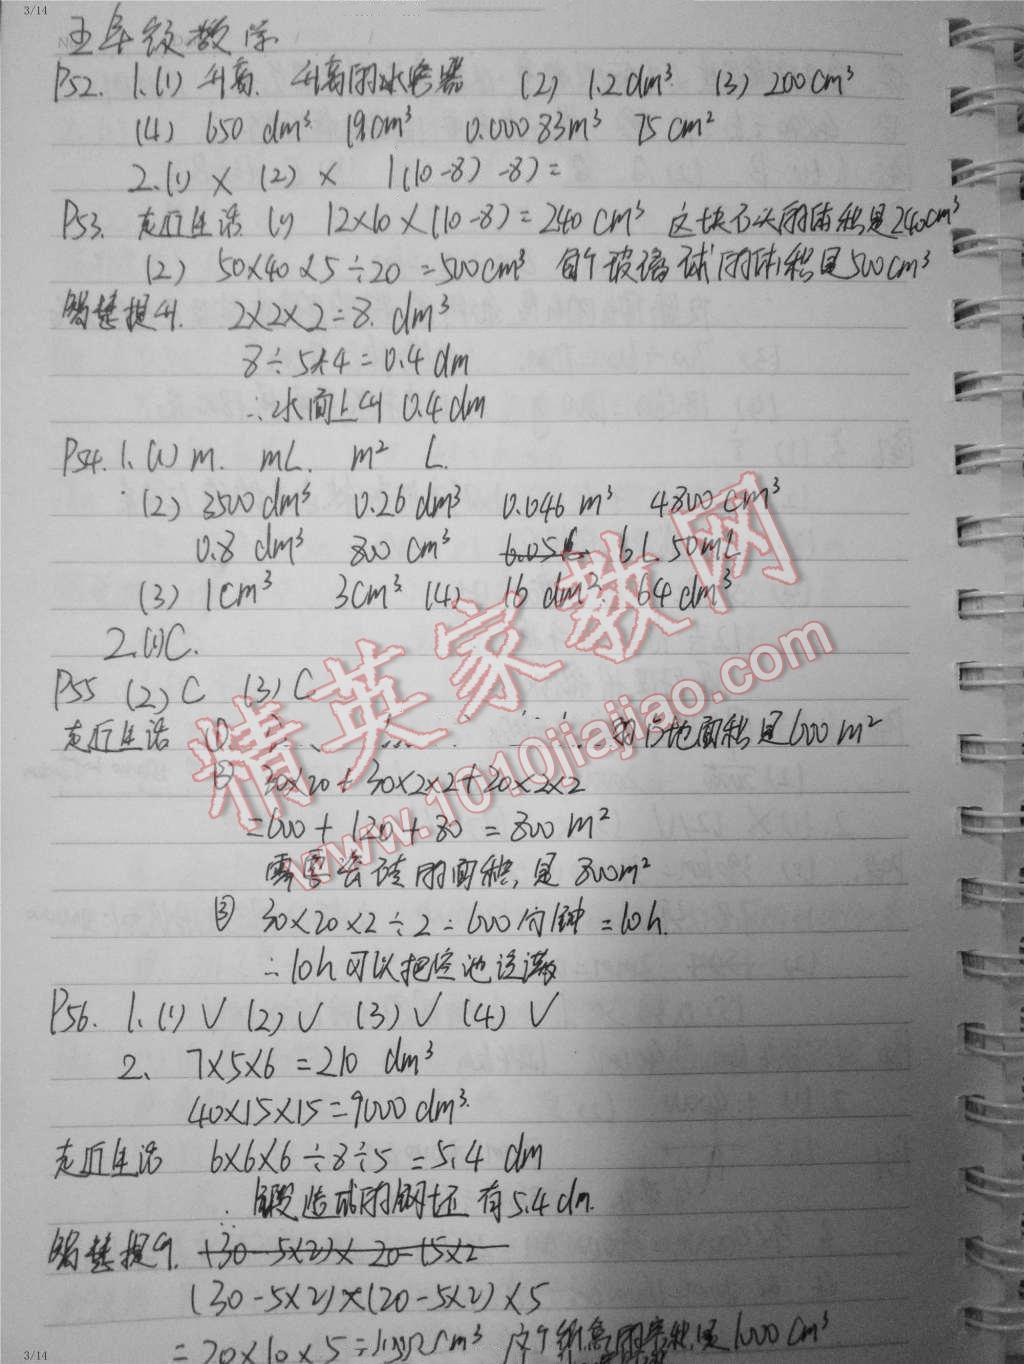 3/14
五年级数学
P52. 1.(1) 升高. 升高的水容器 (2) 1.2dm³. (3) 200cm³
(4) 650 dm³. 19cm³ 0.00083m³ 75cm²
2.(1) × (2) × 1(10-8)-8)=
P53. 走近生活 (1) 12×10×(10-8)=240cm³ 这块石头的体积是240cm³
(2) 50×40×5÷20=500cm³ 每个玻璃球的体积是500cm³
智慧提升. 2×2×2=8. dm³
8÷5÷4=0.4dm
∴水面上升0.4dm
P54. 1.(1) m. mL. m² L.
(2) 3500dm³ 0.26dm³ 0.046m³ 4800cm³
0.8dm³ 800cm³ 6L 50mL
(3) 1cm³ 3cm³. (4) 16dm². 64dm³
2.(1)C.
P55 (2)C (3)C
走近生活 ① 占地面积是600m²
② 30×20+30×2×2+20×2×2
=600+120+80=800m²
需要瓷砖的面积是800m²
③ 30×20×2÷2=600分钟=10h.
∴10h可以把空池注满
P56. 1.(1)√ (2)√ (3)√ (4)√
2. 7×5×6=210 dm³
40×15×15=9000dm³.
走近生活 6×6×6÷8÷5=5.4 dm
∴锻造成的钢坯有5.4dm.
智慧提升. (30-5×2)×20-(5×2
(30-5×2)×(20-5×2)×5
=20×10×5=1000cm³ 这个纸盒的容积是1000cm³
精英家教网
www.1010jiajiao.com
3/14